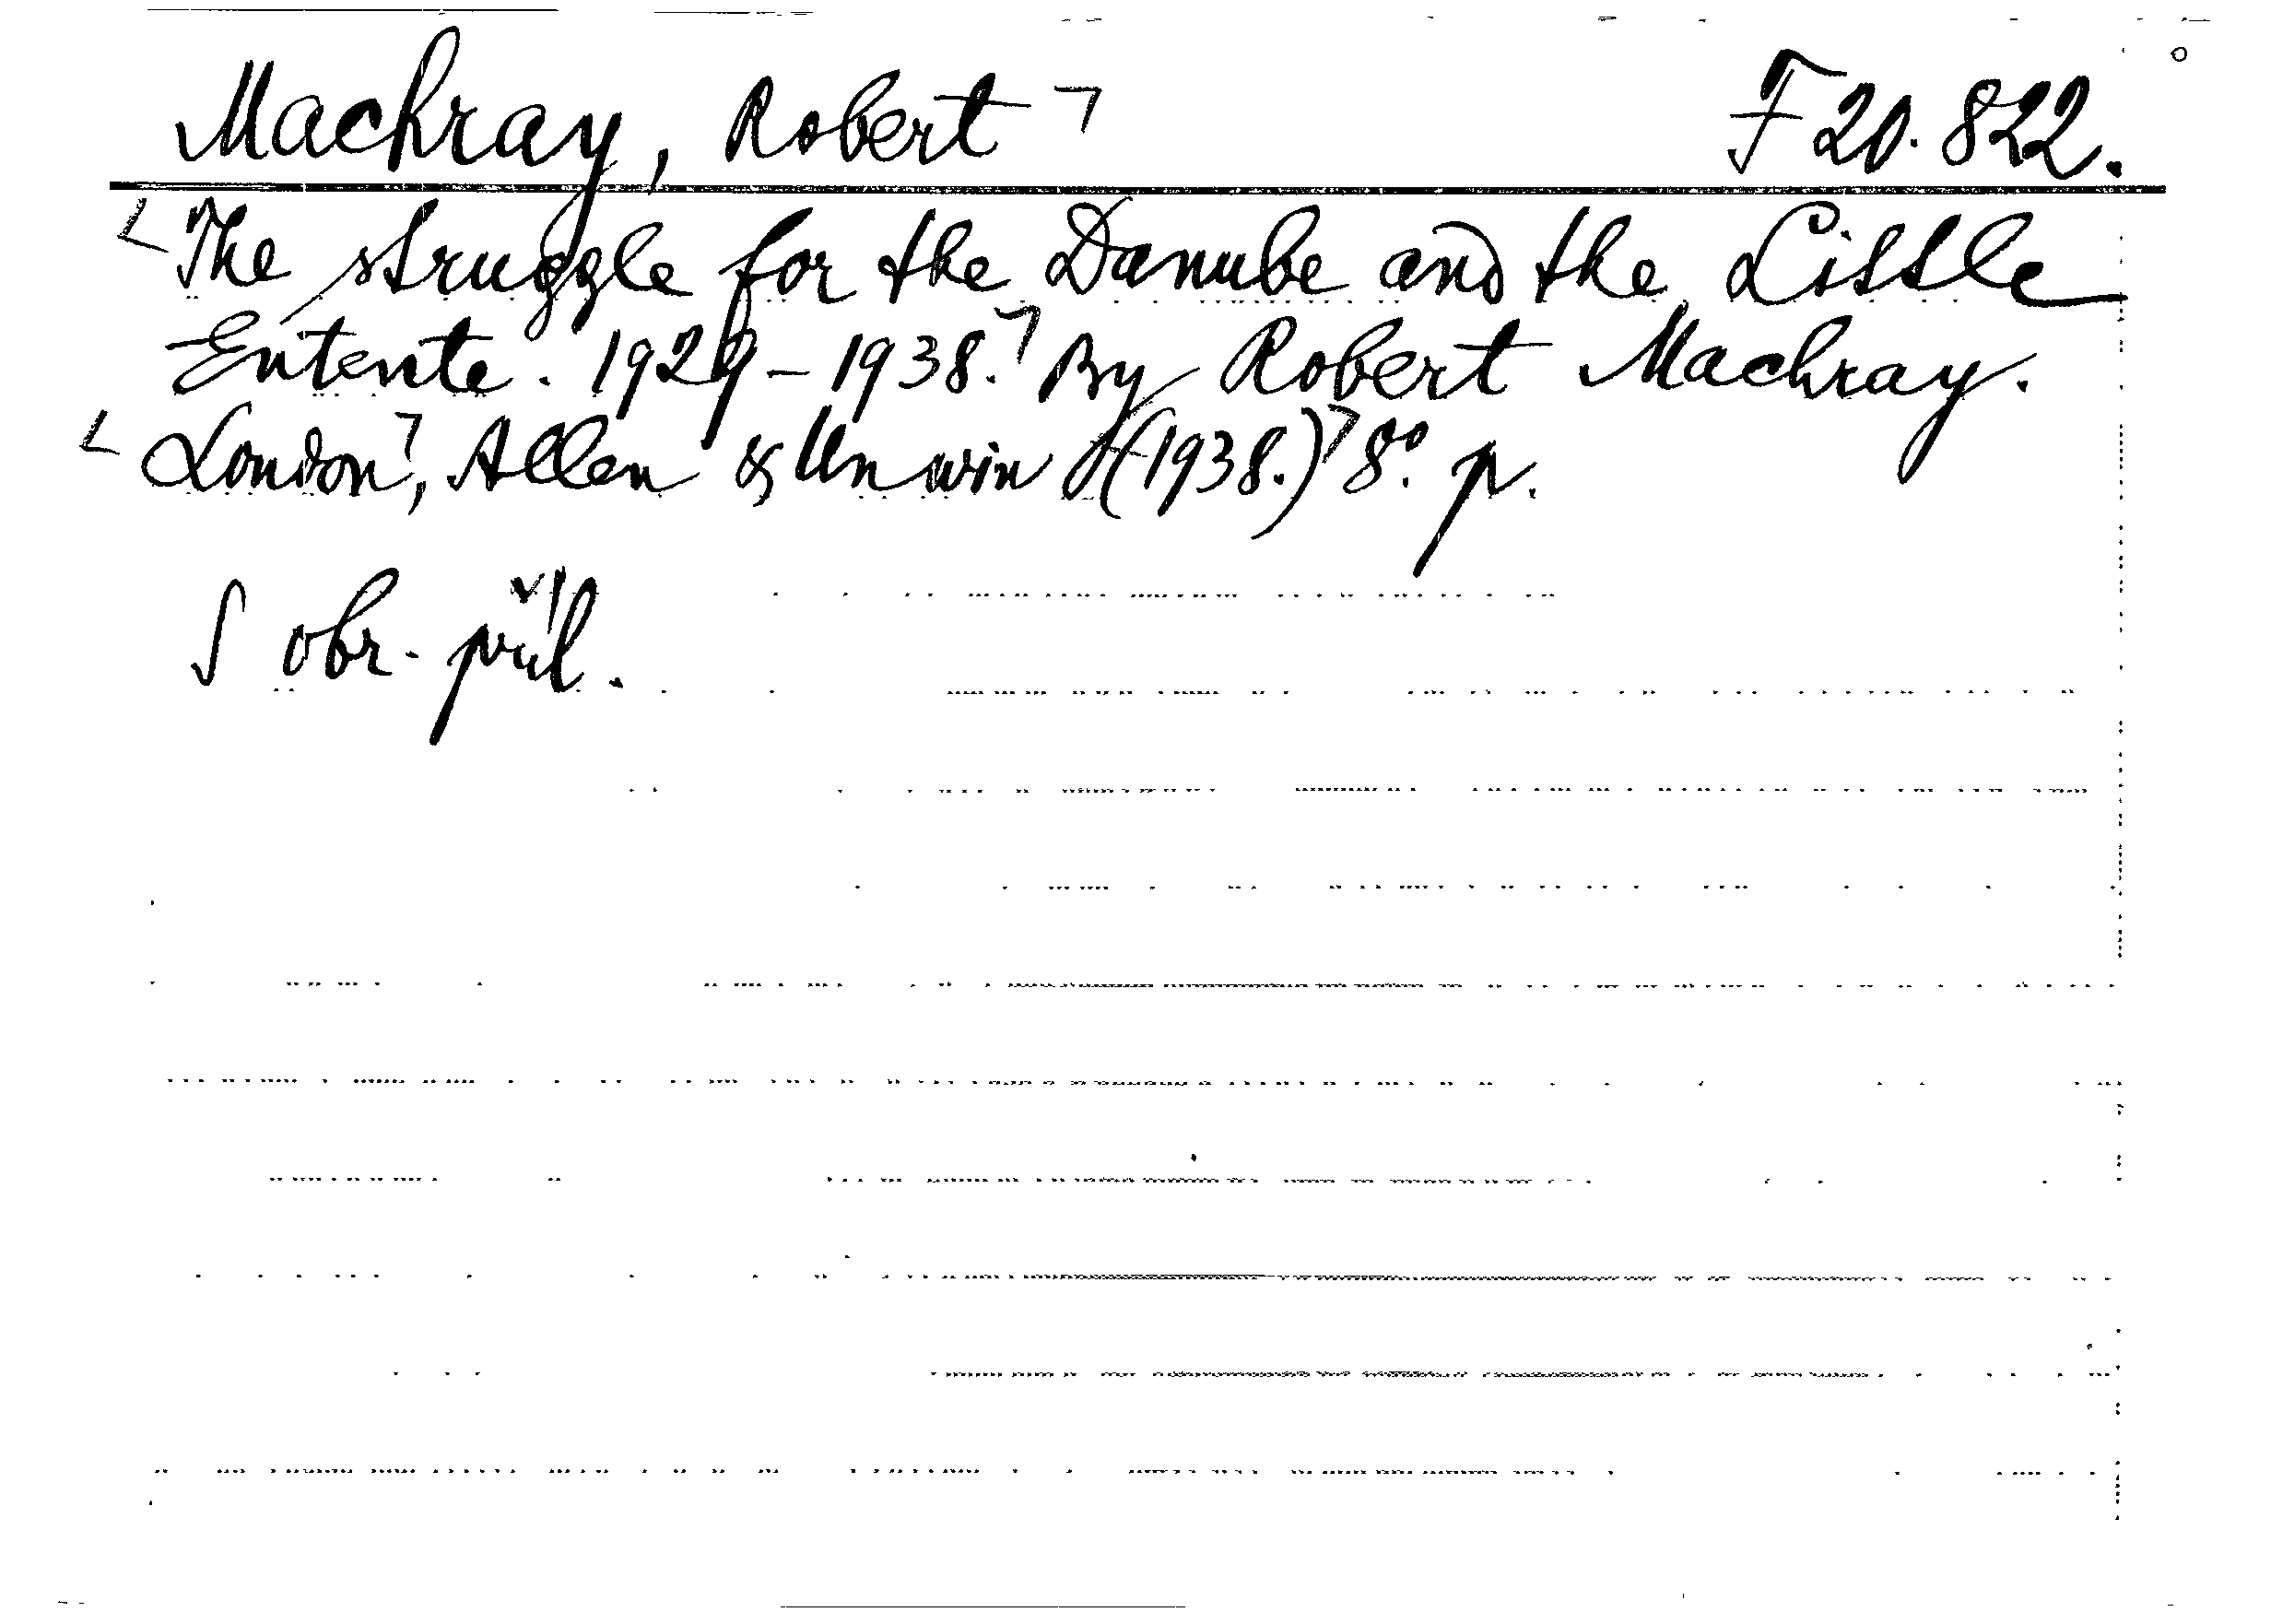 Machray, Robert ㄱ F 20.822.
< The struggle for the Danube and the Little
Entente. 1929-1938. ㄱ By Robert Machray.
< London ㄱ, Allen & Unwin (1938.) ㄱ 8°. p.
S obr. příl.